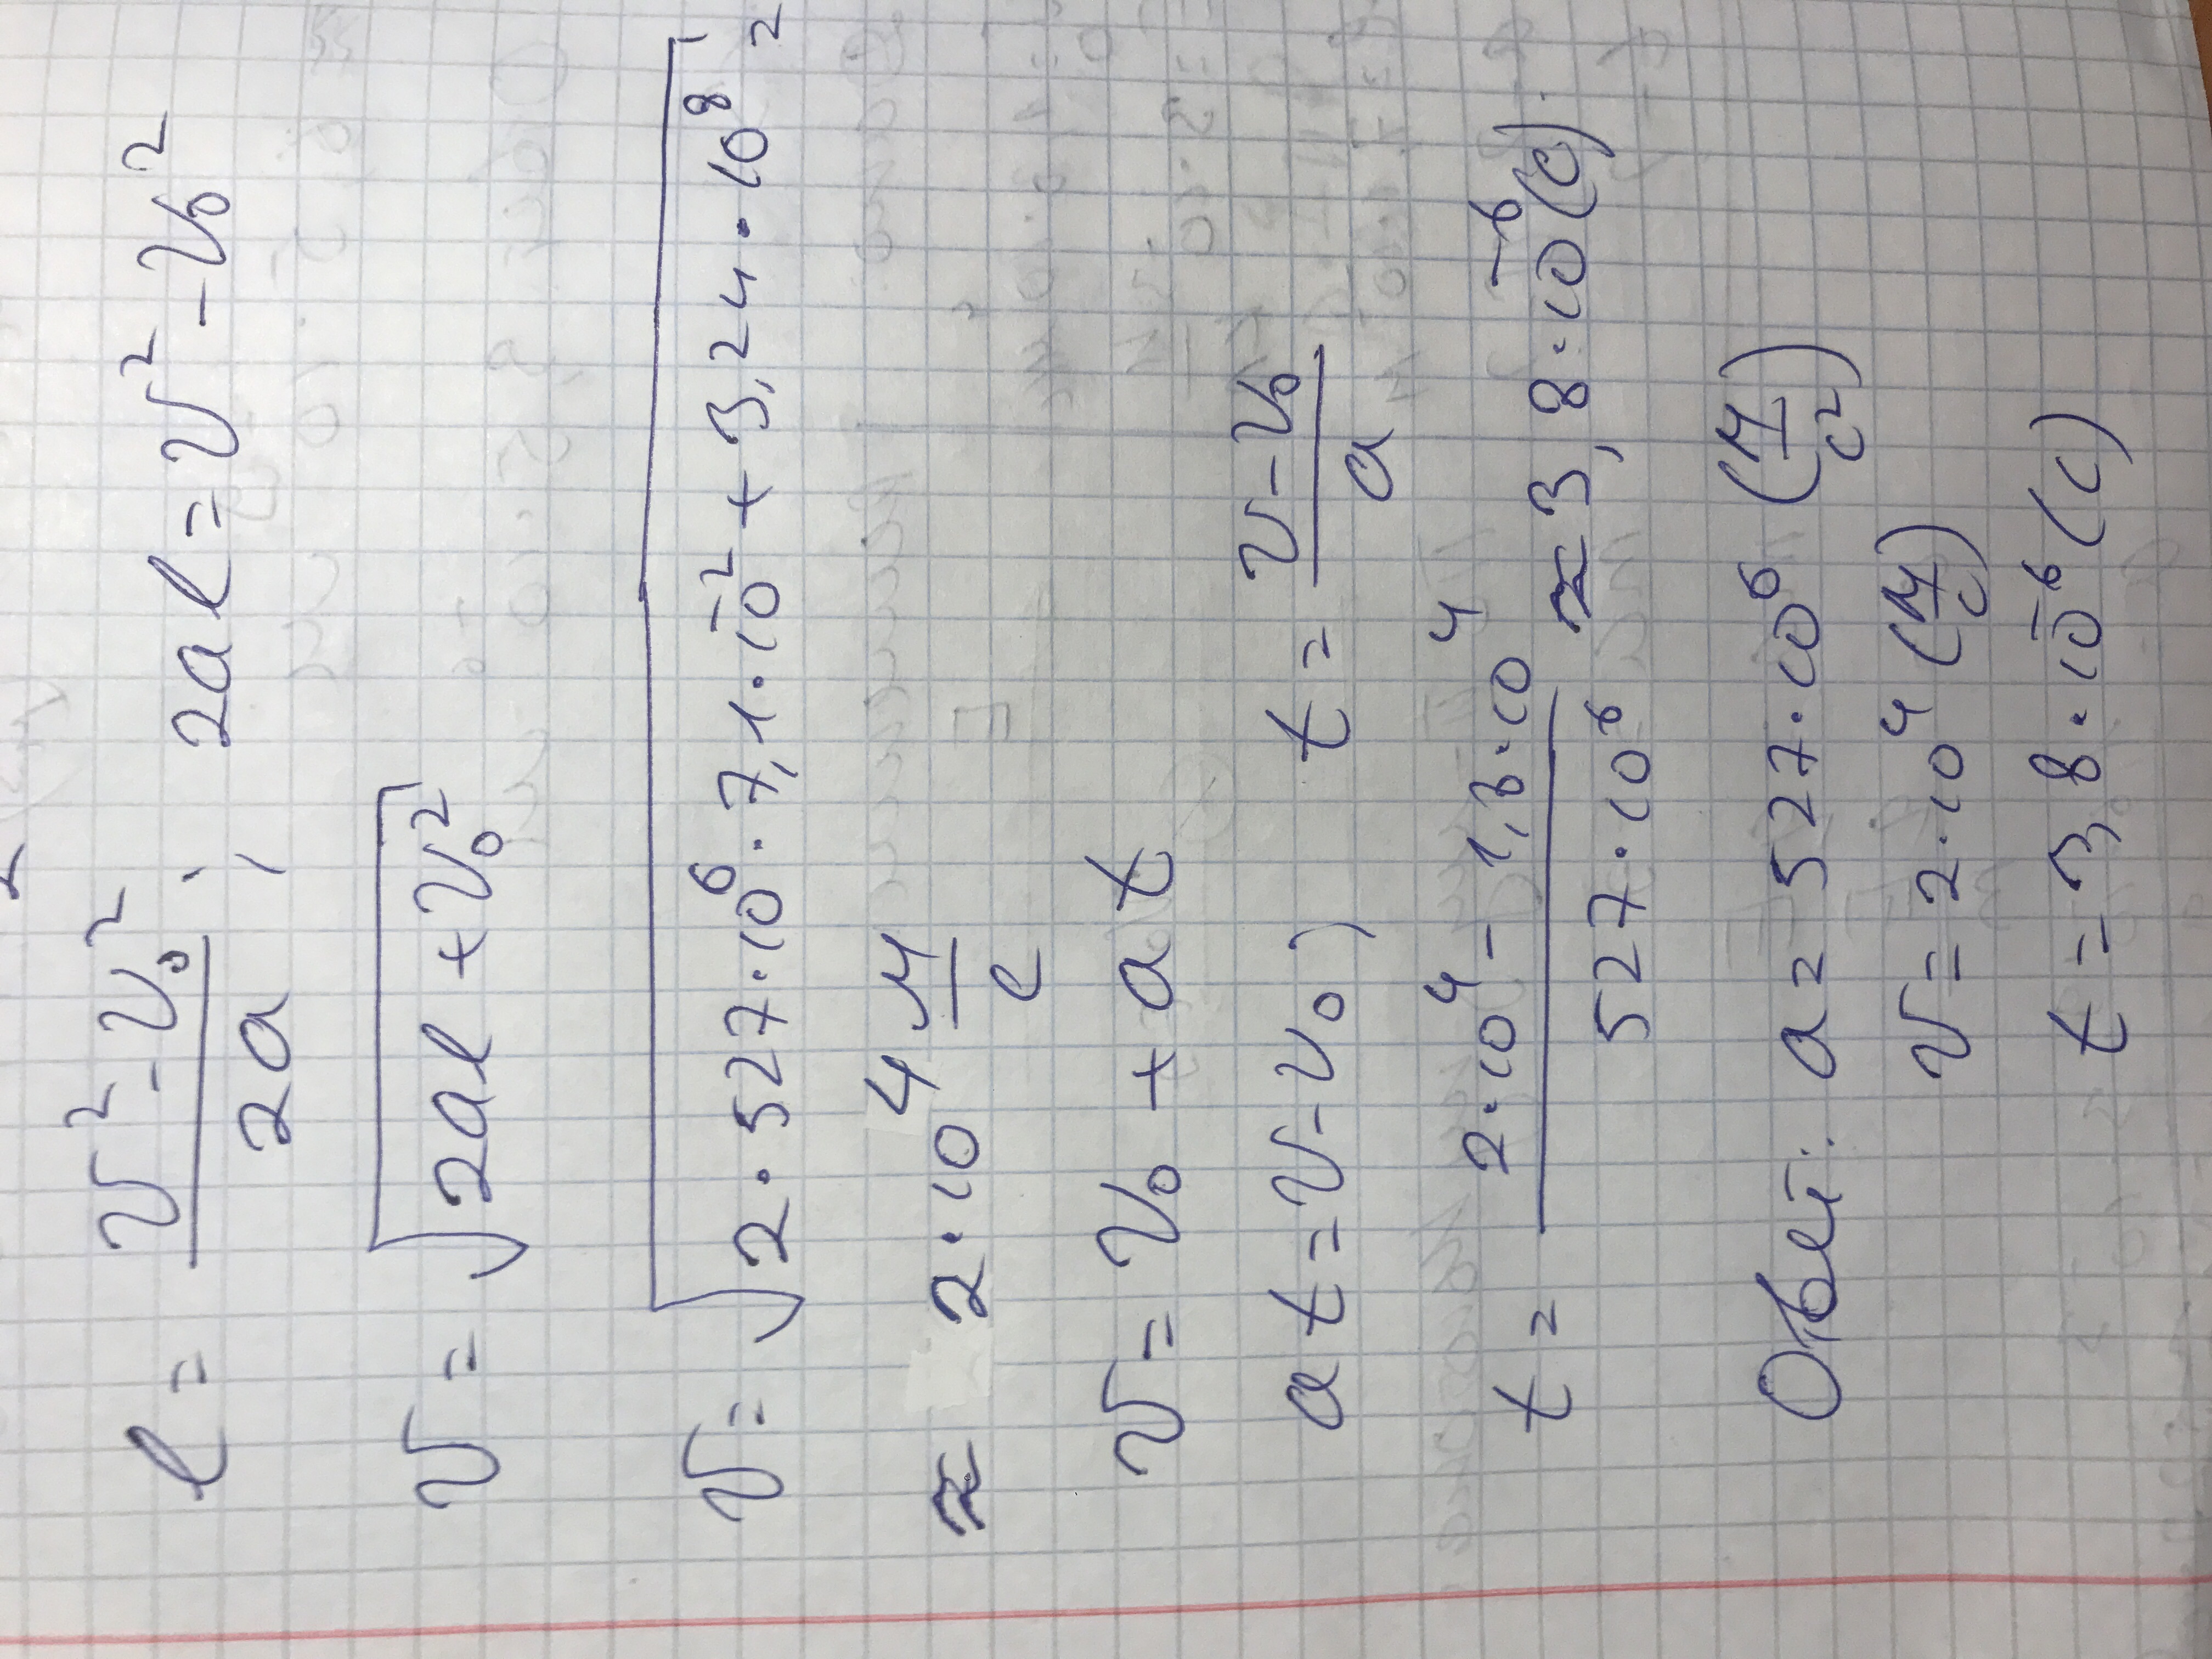 l = (v² - v₀²)/(2a) ; 2al = v² - v₀²
v = √(2al + v₀²)
v = √(2·527·10⁶·7,1·10⁻² + 3,24·10⁸) =
≈ 2·10⁴ м/с
v = v₀ + at
at = v - v₀) t = (v - v₀)/a
t = (2·10⁴ - 1,8·10⁴)/(527·10⁶) ≈ 3,8·10⁻⁶ (с).
Ответ: a = 527·10⁶ (м/с²)
v = 2·10⁴ (м/с)
t = 3,8·10⁻⁶ (с)